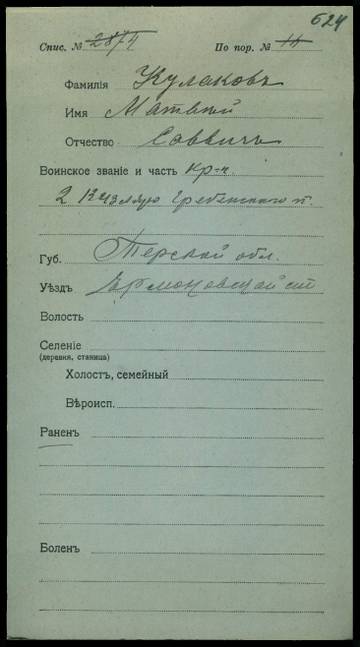 624
Спис. № 2874 По пор. № 14
Фамилія Кулаковъ
Имя Матвѣй
Отчество Саввичъ
Воинское званіе и часть кр-ч.
2 Кизляро Гребенского п.
Губ. Терской обл.
Уѣздъ Ермоловской ст
Волость
Селеніе
(деревня, станица)
Холостъ, семейный
Вѣроисп.
Раненъ
Боленъ